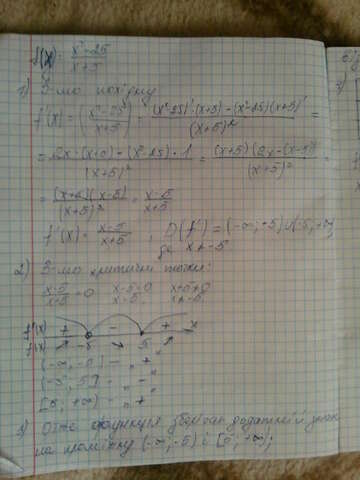 f(x) = \frac{x²-25}{x+5}
1) З-мо похідну
f'(x) = (\frac{x²-25}{x+5})' = \frac{(x²-25)'·(x+5) - (x²-25)(x+5)'}{(x+5)²} =
= \frac{2x·(x+5) - (x²-25)·1}{(x+5)²} = \frac{(x+5)(2x-(x-5))}{(x+5)²} =
= \frac{(x+5)(x-5)}{(x+5)²} = \frac{x-5}{x+5}
f'(x) = \frac{x-5}{x+5}, D(f') = (-∞; -5)∪(-5; +∞)
де x≠-5
2) З-мо критичні точки:
\frac{x-5}{x+5} = 0 x-5=0 x+5≠0
x=5 x≠-5
f'(x) + - + x
f(x) ↗ -5 ↘ 5 ↗
(-∞; -5] - „+"
(-5; 5] - „-"
[5; +∞) - „+"
3) Отже функція зберігає додатній знак
на проміжку (-∞; -5) і [5; +∞);
3)